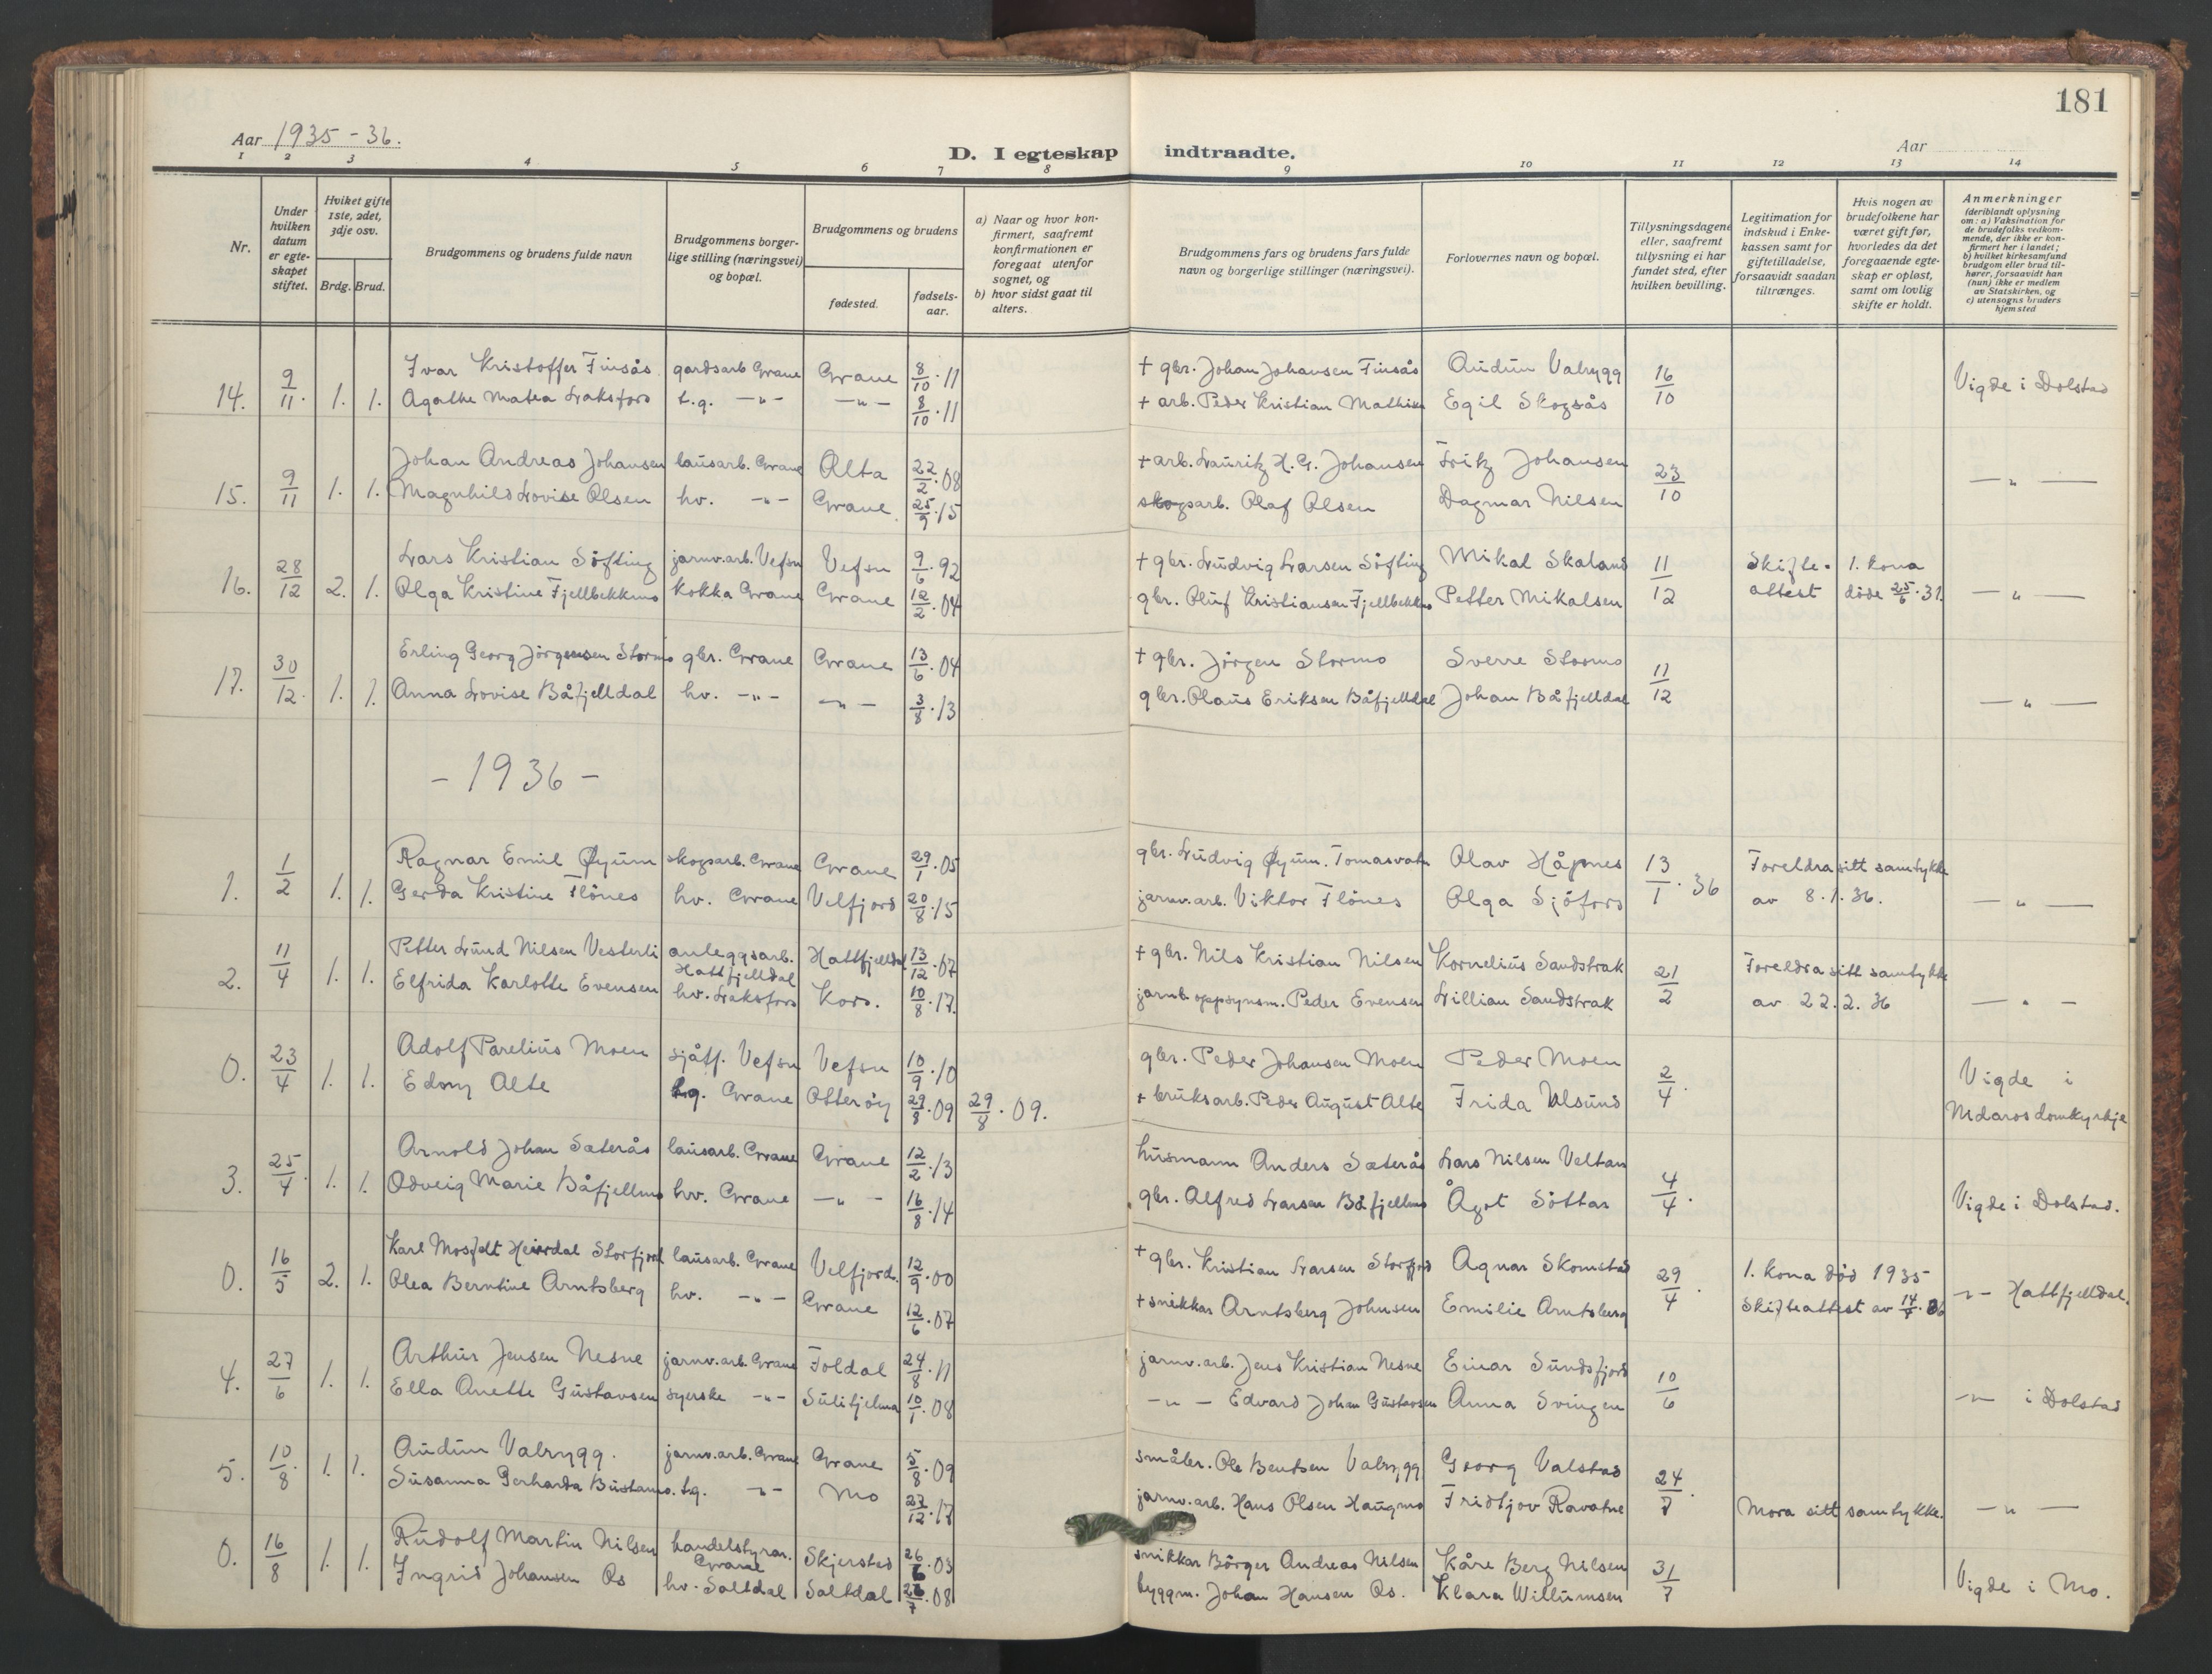 181
Aar 1935-36.
D. I egteskap indtraadte.
Aar
1 2 3 4 5 6 7 8 9 10 11 12 13 14
Nr.
Under hvilken datum er egteskapet stiftet.
Hviket gifte 1ste, 2det, 3dje osv.
Brdg. Brud.
Brudgommens og brudens fulde navn
Brudgommens borgerlige stilling (næringsvei) og bopæl.
Brudgommens og brudens
fødested. fødselsaar.
a) Naar og hvor konfirmert, saafremt konfirmationen er foregaat utenfor sognet, og
b) hvor sidst gaat til alters.
Brudgommens fars og brudens fars fulde navn og borgerlige stillinger (næringsvei).
Forlovernes navn og bopæl.
Tillysningsdagene eller, saafremt tillysning ei har fundet sted, efter hvilken bevilling.
Legitimation for indskud i Enkekassen samt for giftetilladelse, forsaavidt saadan tiltrænges.
Hvis nogen av brudefolkene har været gift før, hvorledes da det foregaaende egteskap er opløst, samt om lovlig skifte er holdt.
Anmerkninger (deriblandt oplysning om: a) Vaksination for de brudefolks vedkommende, der ikke er konfirmert her i landet; b) hvilket kirkesamfund brudgom eller brud tilhører, forsaavidt han (hun) ikke er medlem av Statskirken, og c) utensogns bruders hjemsted
14. 9/11. 1. 1. Ivar Kristoffer Finsås gardsarb Grane Grane 8/10.11 + gbr. Johan Johansen Finsås Audun Valrygg 16/10 Vigde i Dolstad
Agathe Matea Laksfors t.g. -"- -"- 8/10.11 + arb. Peder Kristian Mathisen Egil Skogsås
15. 9/11 1. 1. Johan Andreas Johansen lausarb. Grane Alta 22/2.08 + arb. Lauritz H. G. Johansen Fritz Johansen 23/10 -"-
Magnhild Lovise Olsen hv. -"- Grane 25/9.15 skogsarb. Olaf Olsen Dagmar Nilsen
16. 28/12 2. 1. Lars Kristian Söfting jarnv.arb. Vefsn Vefsn 9/6.92 + gbr. Ludvig Larsen Söfting Mikal Skaland 11/12 Skifteattest 1. kona döde 25/6.31. -"-
Olga Kristine Fjellbekkmo kokka Grane Grane 12/2.04 gbr. Oluf Kristiansen Fjellbekkmo Petter Mikalsen
17. 30/12. 1. 1. Erling Georg Jörgensen Stormo gbr. Grane Grane 13/6.04 + gbr. Jörgen Stormo Sverre Stormo 11/12 -"-
Anna Lovise Båfjelldal hv. -"- -"- 3/8.13 gbr. Olaus Eriksen Båfjelldal Johan Båfjelldal
- 1936 -
1. 1/2 1. 1. Ragnar Emil Øyum skogsarb. Grane Grane 29/1.05 gbr. Ludvig Øyum. Tomasvatn Olav Håpnes 13/1.36 Foreldra sitt samtykke
Gerda Kristine Flönes hv. Grane Velfjord 20/8.15 jarnv.arb. Viktor Flönes Olga Sjöfors av 8.1.36. -"-
2. 11/4 1. 1. Petter Lund Nilsen Vesterli anleggsarb. Hattfjelldal Hattfjelldal 13/12.07 + gbr. Nils Kristian Nilsen Kornelius Sandstrak 21/2 Foreldra sitt samtykke
Elfrida Karlotte Evensen hv. Laksfors Kors. 10/8.17. jarnb.oppsynsm. Peder Evensen Lillian Sandstrak av 22.2.36 -"-
0. 23/4 1. 1. Adolf Parelius Moen sjåff. Vefsn Vefsn 10/9.10 gbr. Peder Johansen Moen Peder Moen 2/4. Vigde i
Edny Alte t.g. Grane Otteröy 29/8.09 29/8.09. + bruksarb. Peder August Alte Frida Ulsund Nidaros domkyrkje
3. 25/4. 1. 1. Arnold Johan Sæterås lausarb. Grane Grane 12/2.13 husmann Anders Sæterås Lars Nilsen Veltan 4/4.
Odveig Marie Båfjellmo hv. Grane -"- 16/8.14 gbr. Alfred Larsen Båfjellmo Ågot Söttar Vigde i Dolstad.
0. 16/5 2. 1. Karl Mosfelt Heierdal Storfjord lausarb. Grane Velfjord. 12/9.00 + gbr. Kristian Larsen Storfjord Agnar Skomstad 29/4. 1. kona död 1935
Olea Berntine Arntsberg hv. -"- Grane 12/6.07 + snikkar Arntsberg Johnsen Emilie Arntsberg Skifteattest av 14/4.36 -"- Hattfjelldal.
4. 27/6 1. 1. Arthur Jensen Nesne jarnv.arb. Grane Foldal 24/8.11 jarnv.arb. Jens Kristian Nesne Einar Sundsfjord 10/6
Ella Anette Gustavsen syerske -"- Sulitjelma 10/1.08 -"- Edvard Johan Gustavsen Anna Svingen -"- i Dolstad
5. 10/8. 1. 1. Audun Valrygg. jarnv.arb. Grane Grane 5/8.09 småbr. Ole Bentsen Valrygg Georg Valstad 24/7.
Susanna Gerharda Bustamo. t.g. -"- Mo 27/12.17 jarnv.arb. Hans Olsen Haugmo Fridtjov Ravatne Mora sitt samtykke. -"-
0. 16/8 1. 1. Rudolf Martin Nilsen handelstyrar. Grane Skjerstad 26/6.03 snikkar Börger Andreas Nilsen Kåre Berg Nilsen 31/7
Ingrid Johansen Os hv. Saltdal Saltdal 26/7.08 byggm. Johan Hansen Os. Klara Willumsen Vigde i Mo.